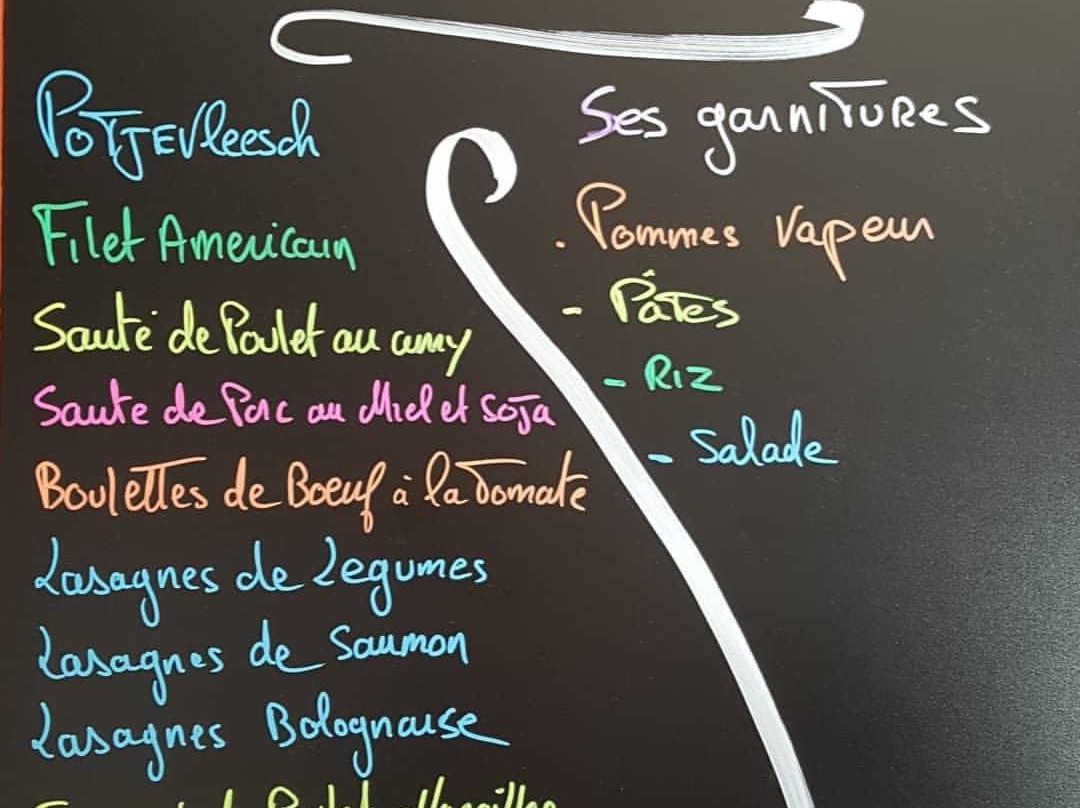 Potjevleesch
Filet Americain
Sauté de Poulet au curry
Saute de Porc au Miel et Soja
Boulettes de Boeuf à la Tomate
Lasagnes de Legumes
Lasagnes de Saumon
Lasagnes Bolognaise
Ses garnitures
. Pommes Vapeur
- Pâtes
- Riz
- Salade